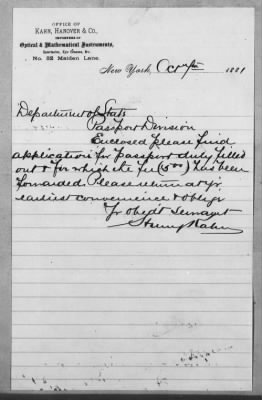 OFFICE OF
KAHN, HANOVER & CO.,
IMPORTERS OF
Optical & Mathematical Instruments,
Spectacles, Eye Glasses, &c.
No. 52 Maiden Lane.
New York, 1881
Department of State
Passport Division
Enclosed please find
application for passport duly filled
out & for which the fee (5⁰⁰) has been
forwarded. Please return at yr
earliest convenience & oblige
Yr obed't Servant
Henry Kahn